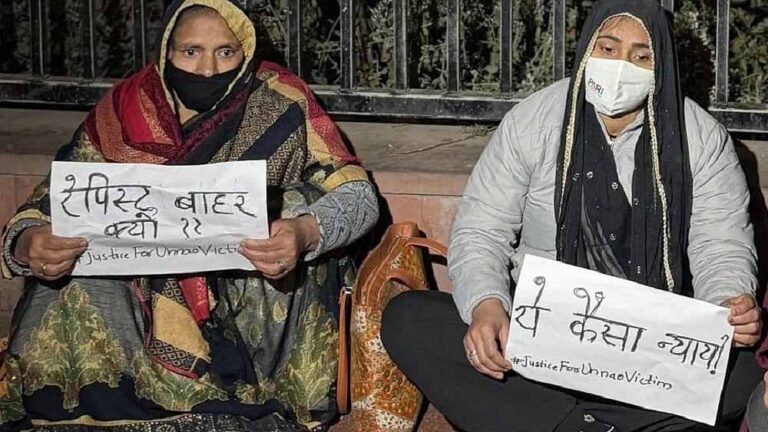 रेपिस्ट बाहर
क्यों ??
#JusticeForUnnaoVictim
PARI
ये कैसा न्याय?
#JusticeForUnnaoVictim